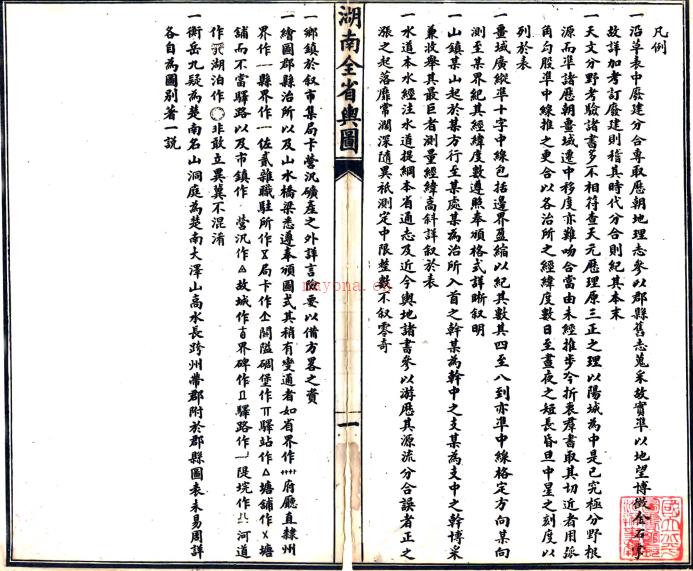 凡例
一沿革表中廢建分合專取歷朝地理志參以郡縣舊志蒐采故實準以地望博徵金石掌
故詳加考訂廢建則稽其時代分合則紀其本末
一天文分野考驗諸書多不相符查天元歷理原三正之理以陽城為中是已究極分野根
源而準諸歷朝畺域遷中移度亦難吻合當由未經推步今折衷羣書取其切近者用弧
角句股準中線推之更合以各治所之經緯度數日至晝夜之短長昏旦中星之刻度以
列於表
一畺域廣縱準十字中線包括邊界盈縮以紀其數其四至八到亦準中線格定方向某向
測至某界紀其經緯度數遵照奉頒格式詳晰叙明
一山鎮某山起於某方行至某處某為治所入首之幹某為幹中之支某為支中之幹博采
兼收舉其最巨者測量經緯高斜詳叙於表
一水道本水經注水道提綱本省通志及近今輿地諸書參以游歷其源流分合誤者正之
漲之起落靡常濶深隨異祇測定中限整數不叙零奇
湖南全省輿圖
一
一鄉鎮於叙市集局卡營汛礦產之外詳言險要以備方畧之資
一繪圖郡縣治所以及山水橋梁悉遵奉頒圖式其稍有變通者如省界作 府廳直隸州
界作 縣界作 佐貳雜職駐所作 局卡作 關隘碉堡作 驛站作 塘舖作 塘
舖而不當驛路以及市鎮作 營汛作 故城作 界碑作 驛路作 隄垸作 河道
作 湖泊作 非敢立異冀不混淆
一衡岳九疑為楚南名山洞庭為楚南大澤山高水長跨州帶郡附於郡縣圖表未易周詳
各自為圖別著一説
mayona.cc